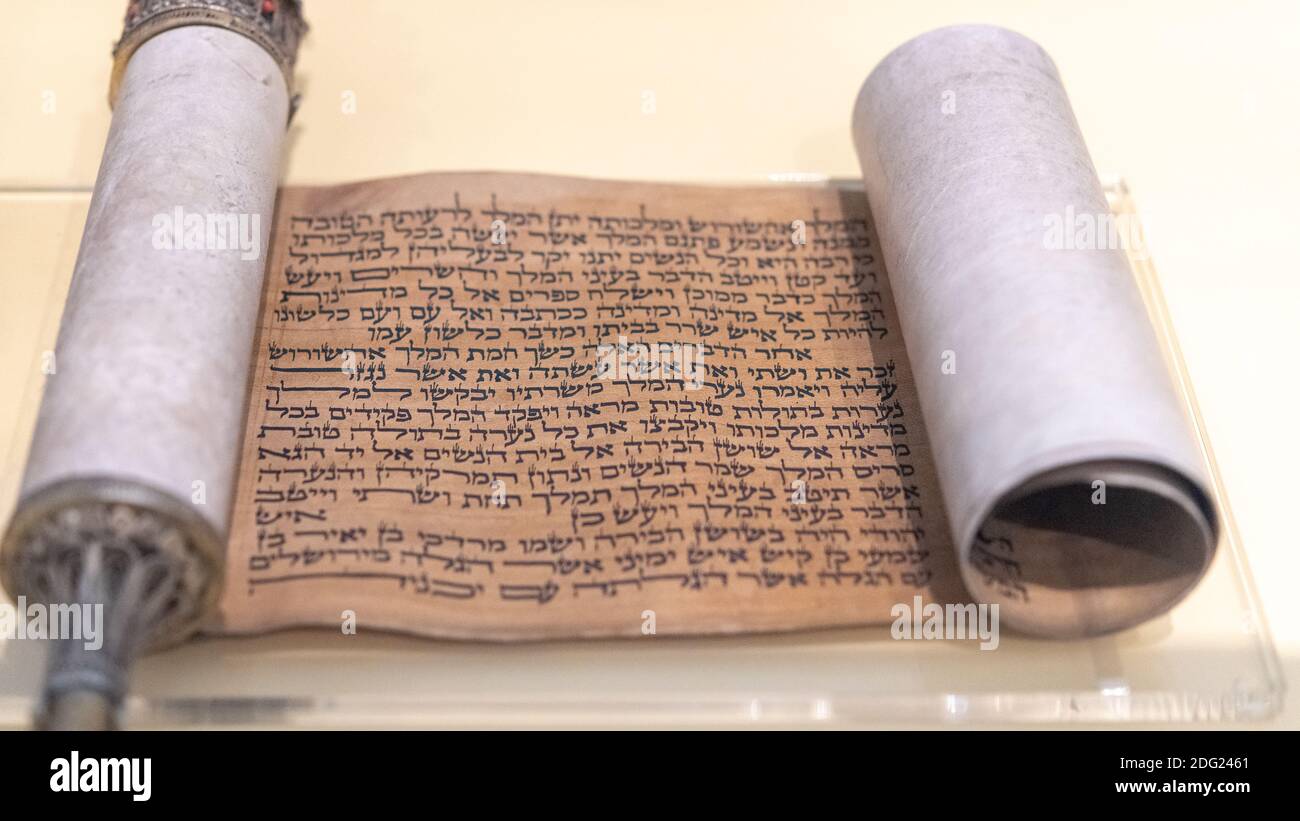 המלך אחשורוש ומלכותה יתן המלך לרעותה הטובה
ממנה ונשמע פתגם המלך אשר יעשה בכל מלכותו
כי רבה היא וכל הנשים יתנו יקר לבעליהן למגדול
ועד קטן וייטב הדבר בעיני המלך והשרים ויעש
המלך כדבר ממוכן וישלח ספרים אל כל מדינות
המלך אל מדינה ומדינה ככתבה ואל עם ועם כלשונו
להיות כל איש שרר בביתו ומדבר כלשון עמו
אחר הדברים האלה כשך חמת המלך אחשורוש
זכר את ושתי ואת אשר עשתה ואת אשר נגזר
עליה ויאמרו נערי המלך משרתיו יבקשו למלך
נערות בתולות טובות מראה ויפקד המלך פקידים בכל
מדינות מלכותו ויקבצו את כל נערה בתולה טובת
מראה אל שושן הבירה אל בית הנשים אל יד הגא
סריס המלך שמר הנשים ונתון תמרקיהן והנערה
אשר תיטב בעיני המלך תמלך תחת ושתי וייטב
הדבר בעיני המלך ויעש כן איש
יהודי היה בשושן הבירה ושמו מרדכי בן יאיר בן
שמעי בן קיש איש ימיני אשר הגלה מירושלים
עם הגלה אשר הגלתה עם יכניה
alamy
Image ID: 2DG2461
www.alamy.com